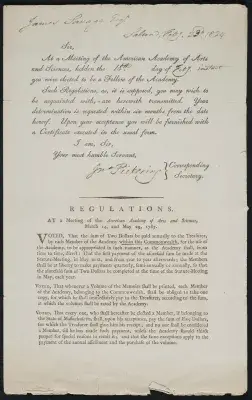 James Savage Esq
Salem, Feb. 23d 1824
Sir,
At a Meeting of the American Academy of Arts
and Sciences, holden the 18th day of Feby. instant
you were elected to be a Fellow of the Academy.
Such Regulations, as, it is supposed, you may wish to
be acquainted with, are herewith transmitted. Your
determination is requested within six months from the date
hereof. Upon your acceptance you will be furnished with
a Certificate executed in the usual form.
I am, Sir,
Your most humble Servant,
Jno. Pickering
Corresponding
Secretary.
REGULATIONS.
AT a Meeting of the American Academy of Arts and Sciences,
March 14, and May 29, 1787.
VOTED, That the sum of Two Dollars be paid annually to the Treasurer,
by each Member of the Academy within this Commonwealth, for the use of
the Academy, to be appropriated in such manner, as the Academy shall, from
time to time, direct: That the first payment of the aforesaid sum be made at the
Stated Meeting, in May next, and in every year to year afterwards; the Members
at liberty to make payments quarterly, semi-annually or annually, so that
the aforesaid sum of Two Dollars be completed at the time of the Stated Meeting
in May, each year.
VOTED, That whenever a Volume of the Memoirs shall be printed, each Member
of the Academy, belonging to the Commonwealth, shall be obliged to take one
copy, for which he shall immediately pay to the Treasurer according to the sum,
at which the volume shall be rated by the Academy.
VOTED, That every one, who shall hereafter be elected a Member, if belonging to
the State of Massachusetts shall, upon his acceptance, pay the sum of Five Dollars,
for which the Treasurer shall give him his receipt; and no one shall be considered
a Member, till he has made such payment, unless the Academy should think
proper for special reasons to remit it; and that the same exceptions apply to the
payment of the annual assessment and the purchase of the volume.